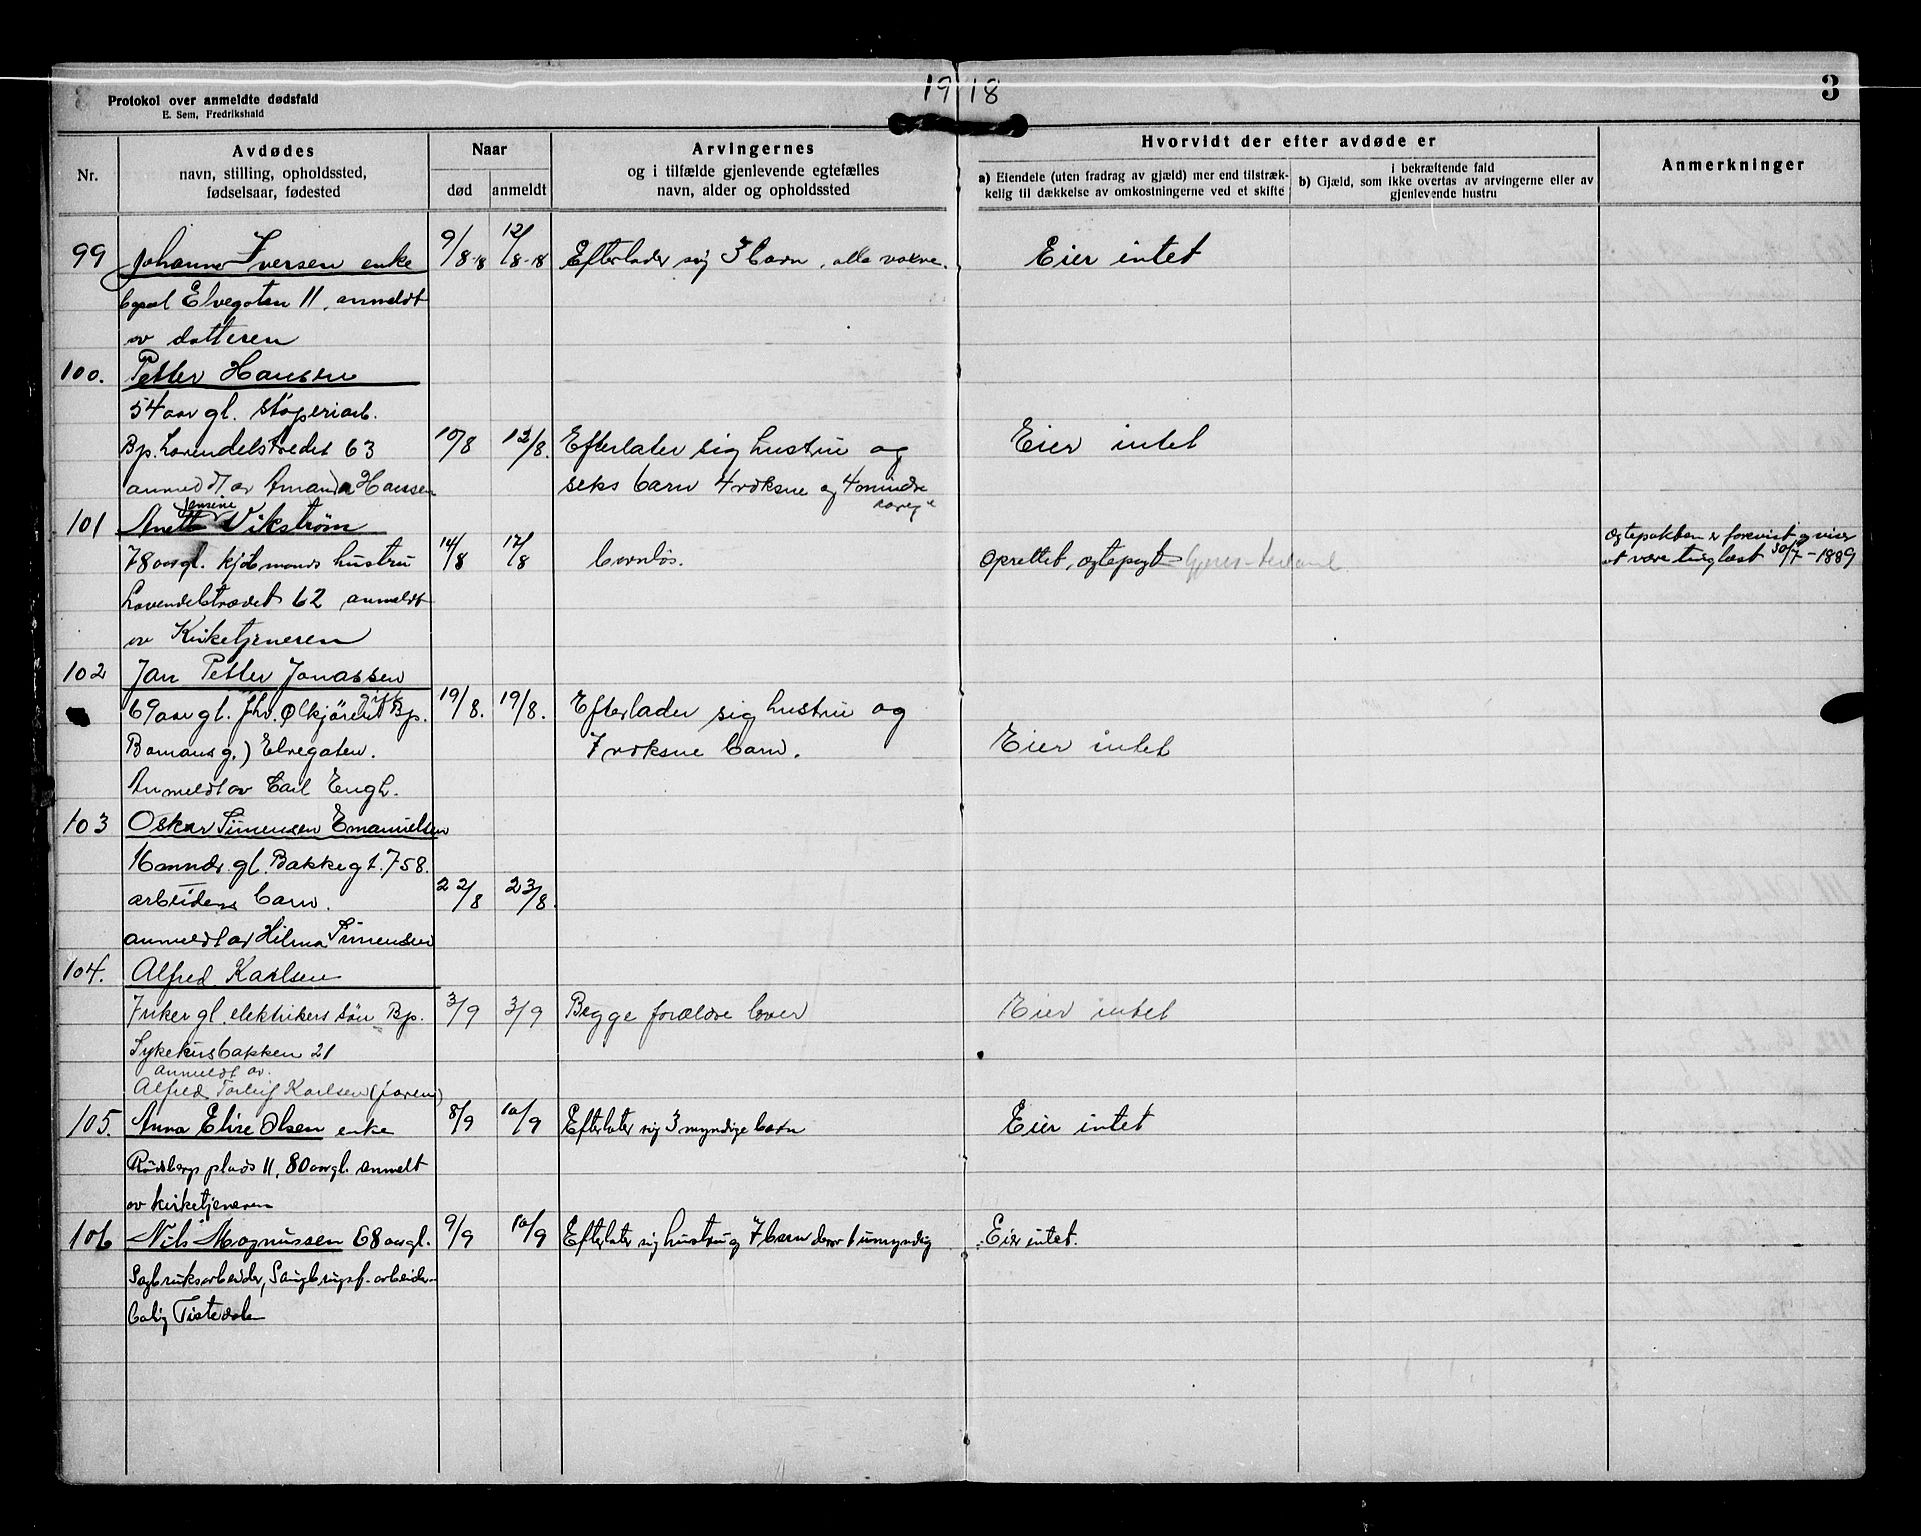 1918
3
Protokol over anmeldte dødsfald
E. Sem, Fredrikshald
Nr.
Avdødes
navn, stilling, opholdssted,
fødselsaar, fødested
Naar
død
anmeldt
Arvingernes
og i tilfælde gjenlevende egtefælles
navn, alder og opholdssted
Hvorvidt der efter avdøde er
a) Eiendele (uten fradrag av gjæld) mer end tilstræk-
kelig til dækkelse av omkostningerne ved et skifte
i bekræftende fald
b) Gjæld, som ikke overtas av arvingerne eller av
gjenlevende hustru
Anmerkninger
99 Johanne Iversen enke 9/8-18 12/8-18 Efterlader sig 3 barn, alle voxne. Eier intet
bopæl Elvegaten 11, anmeldt
av datteren
100. Petter Hansen
54 aar gl. støperiarb.
Bp. Lavendelstredet 63 10/8 12/8. Efterlater sig hustru og Eier intet
anmeldt av Amanda Hansen seks barn 4 voksne og 4 mindre
101 Anette Jensine Vikstrøm
78 aargl. kjøbmands hustru 14/8 17/8 barnløs. oprettet, egtepagt Egtepakten er forevist og viser
at være tinglæst 30/7-1889
Lavendelstrædet 62 anmeldt
av Kirketjeneren
102 Jan Petter Jonassen
69 aar gl. fhv. Ølkjører gift Bp. 19/8. 19/8. Efterlader sig hustru og
Bomansg.) Elvegaten. 7 voksne barn. Eier intet
Anmeldt av Carl Engh.
103 Oskar Simensen Emanuelsen
16 mndr. gl. Bakkegt. 758.
arbeiders barn. 22/8 23/8.
anmeldt av Hilma Simensen
104. Alfred Karlsen
7 uker gl. elektrikers søn Bp. 3/9 3/9 Begge forældre lever Eier intet
Sykehusbakken 21
anmeldt av.
Alfred Torleif Karlsen (faren)
105. Anna Elise Olsen enke 8/9 10/9 Efterlater sig 3 myndige barn Eier intet
Rødsbergs plads 11, 80 aargl. anmelt
av kirketjeneren
106 Nils Magnussen 68 aargl. 9/9 10/9 Efterlater sig hustru og 7 barn derav 1 umyndig Eier intet.
Sagbruksarbeider, Saugbrugsf. arbeider-
bolig Tistedalen